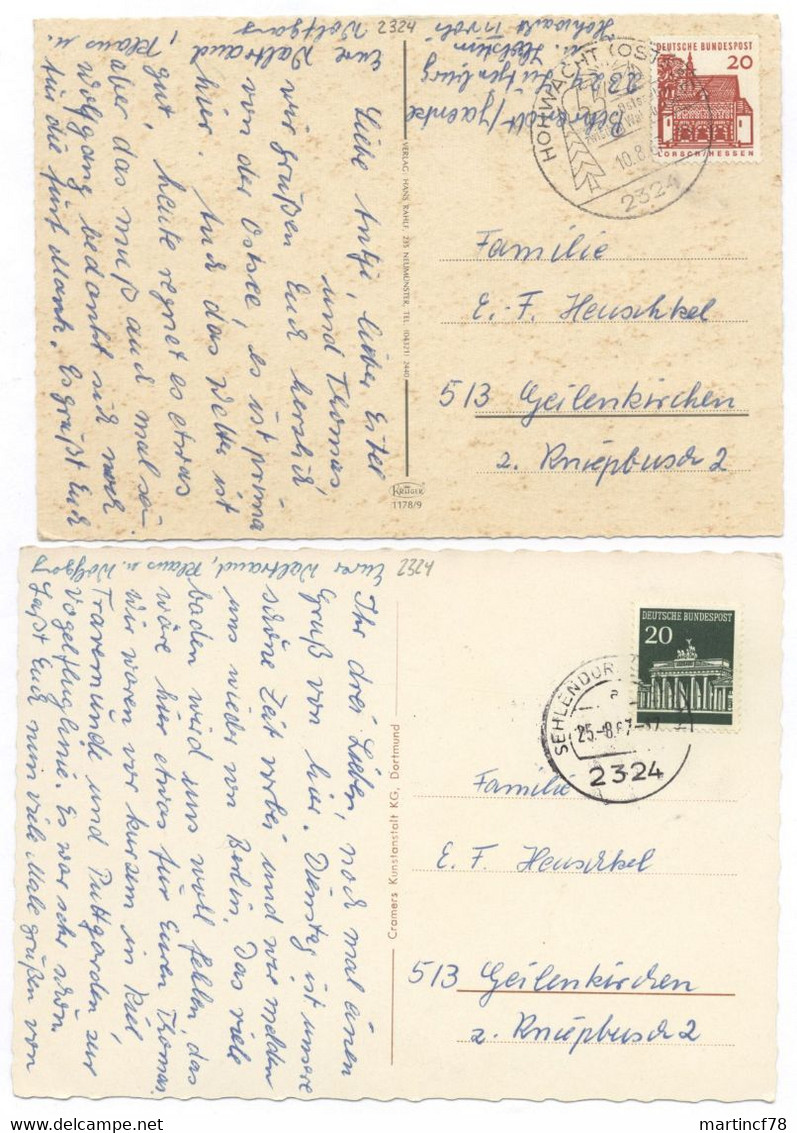 Liebe Antje, lieber Eitel
und Thomas,
wir grüßen Euch herzlich
von der Ostsee, es ist prima
hier. Auch das Wetter ist
gut, heute regnet es etwas
aber das muß auch mal sein.
Wolfgang bedankt sich noch
für die fünf Mark. Es grüßt Euch
Eure Waltraud, Klaus u.
Wolfgang
2324
2324 Lütjenburg
VERLAG HANS KAHLF 235 NEUMÜNSTER, TEL. (04321) 2440
Krüger
1178/9
HOHWACHT (OSTSEE)
10.8.
2324
DEUTSCHE BUNDESPOST
20
LORSCH/HESSEN
Familie
E.-F. Heuschkel
513 Geilenkirchen
z. Kniepbusch 2
Ihr drei Lieben, noch mal einen
Gruß von hier. Dienstag ist unsere
schöne Zeit vorbei und wir melden
uns wieder von Berlin. Das viele
baden wird uns wohl fehlen, das
wäre hier etwas für Euren Thomas.
Wir waren vor kurzem in Kiel
Travemünde und Puttgarden zur
Vogelfluglinie. Es war sehr schön.
Laßt Euch nun viele Male grüßen von
Eurer Waltraud, Klaus u. Wolfgang
2324
Cramers Kunstanstalt KG, Dortmund
SEHLENDORF
a
25.-8.67-17
2324
DEUTSCHE BUNDESPOST
20
Familie
E. F. Heuschkel
513 Geilenkirchen
z. Kniepbusch 2
martincf78